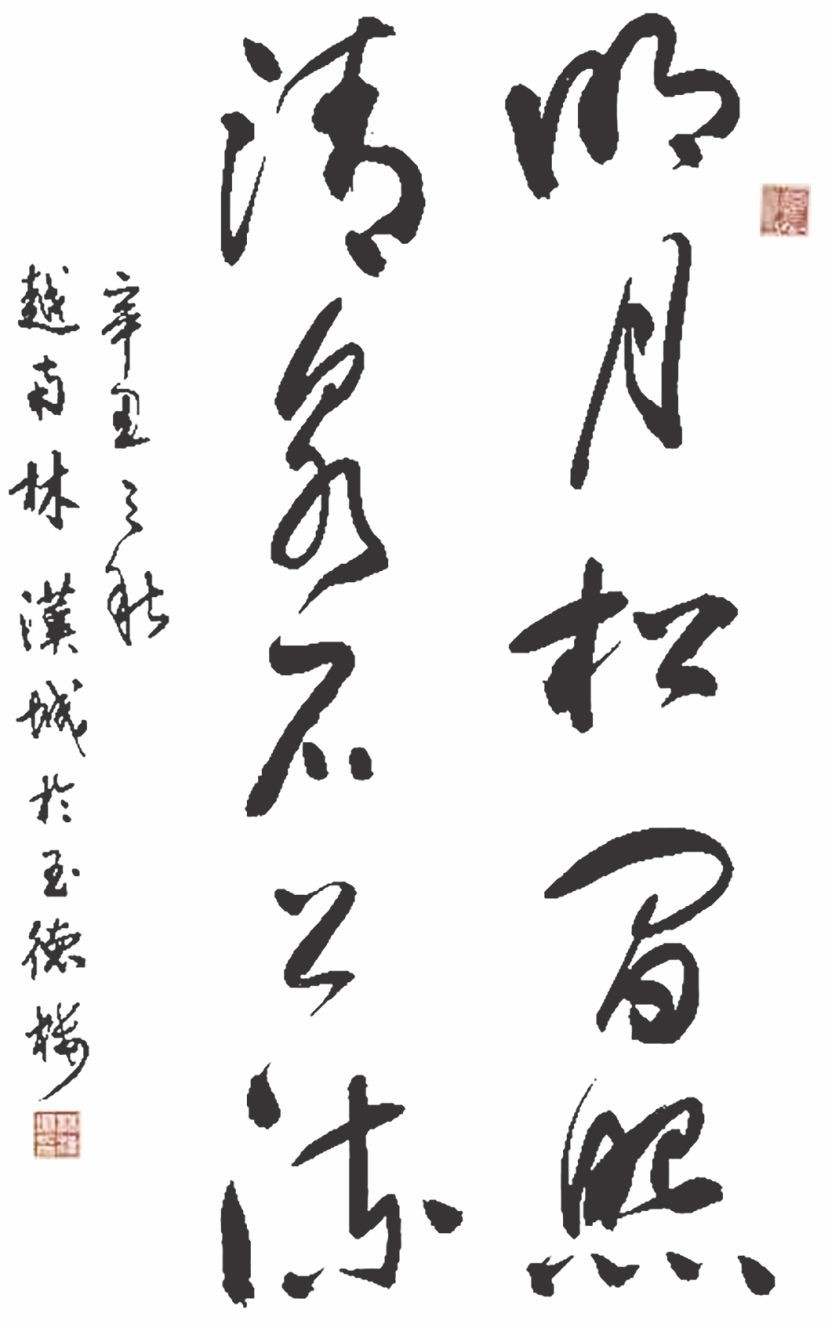 明月松間照
清泉石上流
辛丑之秋
越南林漢城於玉德樓